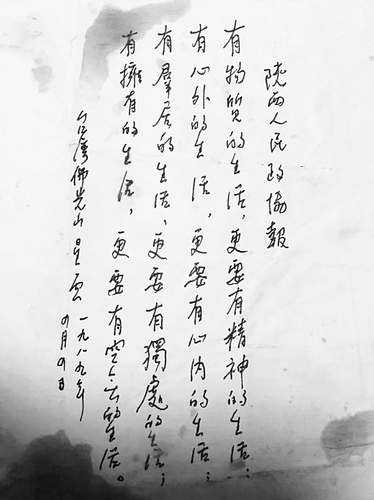 陝西人民政協報
有物質的生活，更要有精神的生活；
有心外的生活，更要有心内的生活；
有羣居的生活，更要有獨處的生活；
有擁有的生活，更要有空无的生活。
台灣佛光山星雲 一九八九年
四月四日